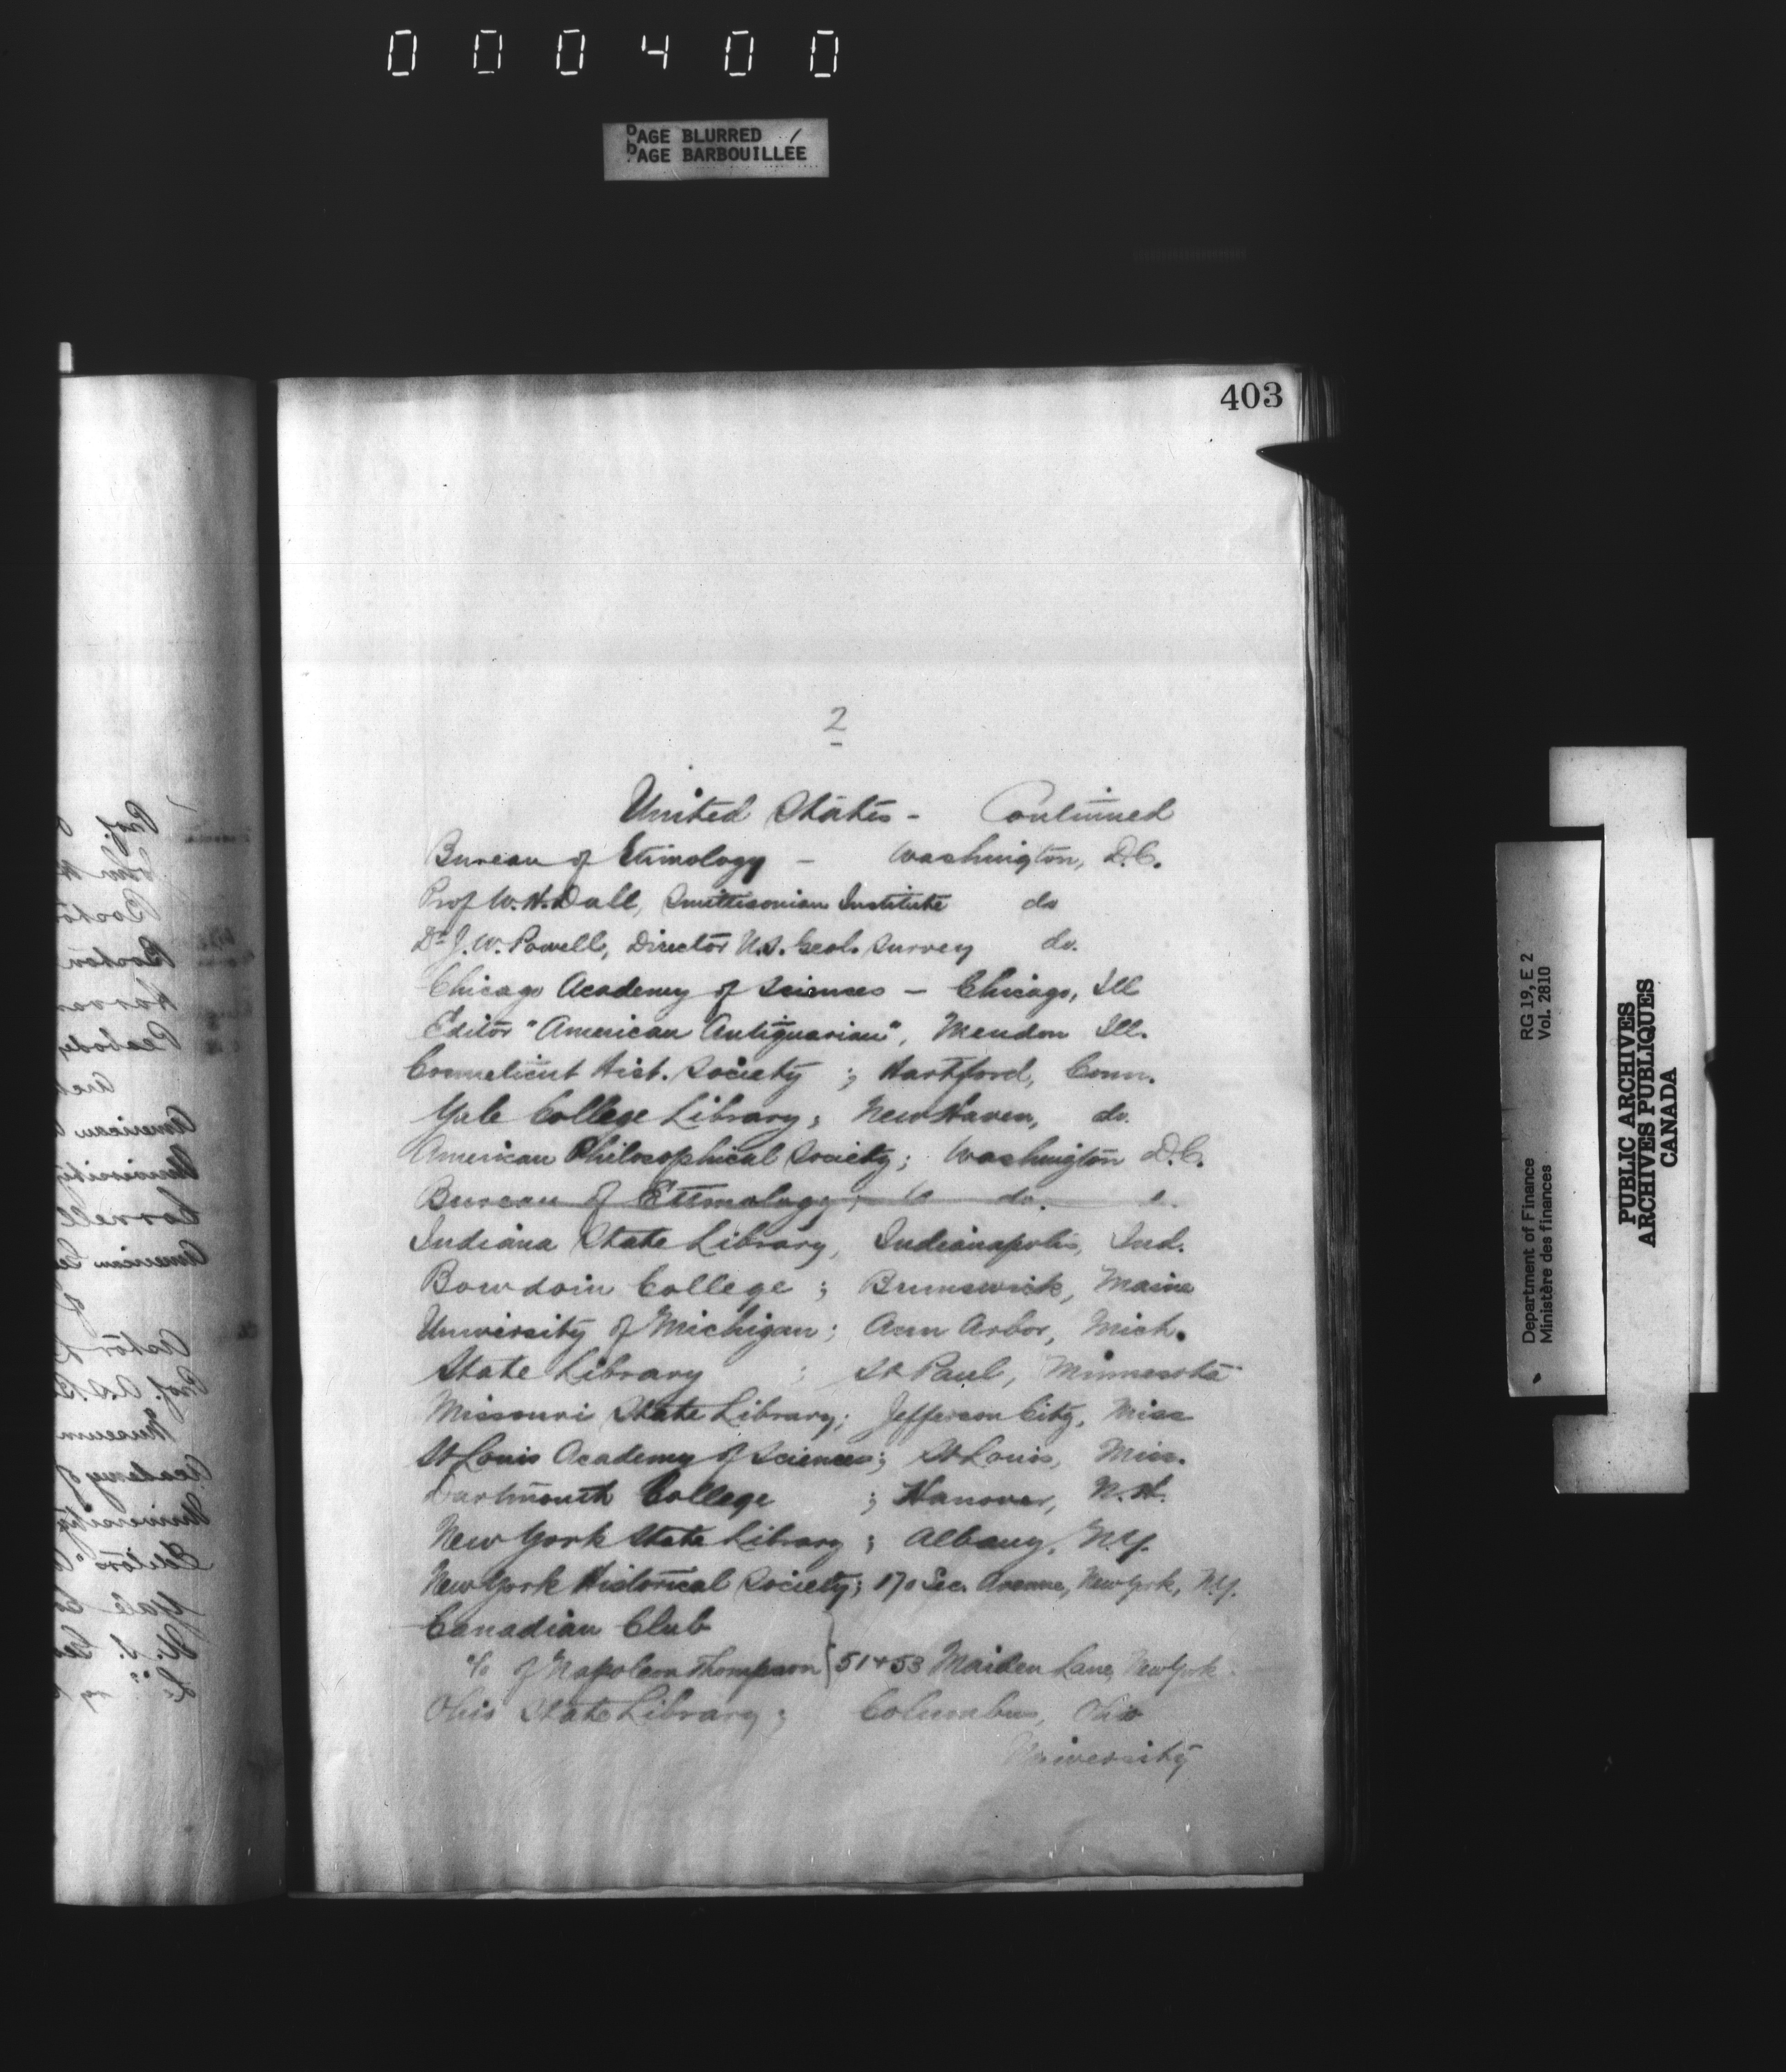 000400
PAGE BLURRED
PAGE BARBOUILLÉE
403
2
United States - Continued
Bureau of Etimology - Washington, D.C.
Prof W.H. Dall, Smithsonian Institute do
Dr J.W. Powell, Director U.S. Geol. Survey do.
Chicago Academy of Sciences - Chicago, Ill
Editor "American Antiquarian", Mendon Ill.
Connecticut Hist. Society ; Hartford, Conn.
Yale College Library; New Haven, do.
American Philosophical Society; Washington D.C.
Bureau of Etimology; do.
Indiana State Library, Indianapolis, Ind.
Bowdoin College ; Brunswick, Maine
University of Michigan; Ann Arbor, Mich.
State Library ; St Paul, Minnesota
Missouri State Library; Jefferson City, Miss
St Louis Academy of Sciences; St Louis, Miss.
Dartmouth College ; Hanover, N.H.
New York State Library ; Albany, N.Y.
New York Historical Society; 170 Sec. Avenue, New York, N.Y.
Canadian Club
c/o of Napoleon Thompson } 51 + 53 Maiden Lane, New York
Ohio State Library ; Columbus, Ohio
University
Department of Finance RG 19, E 2
Ministère des finances Vol. 2810
PUBLIC ARCHIVES
ARCHIVES PUBLIQUES
CANADA